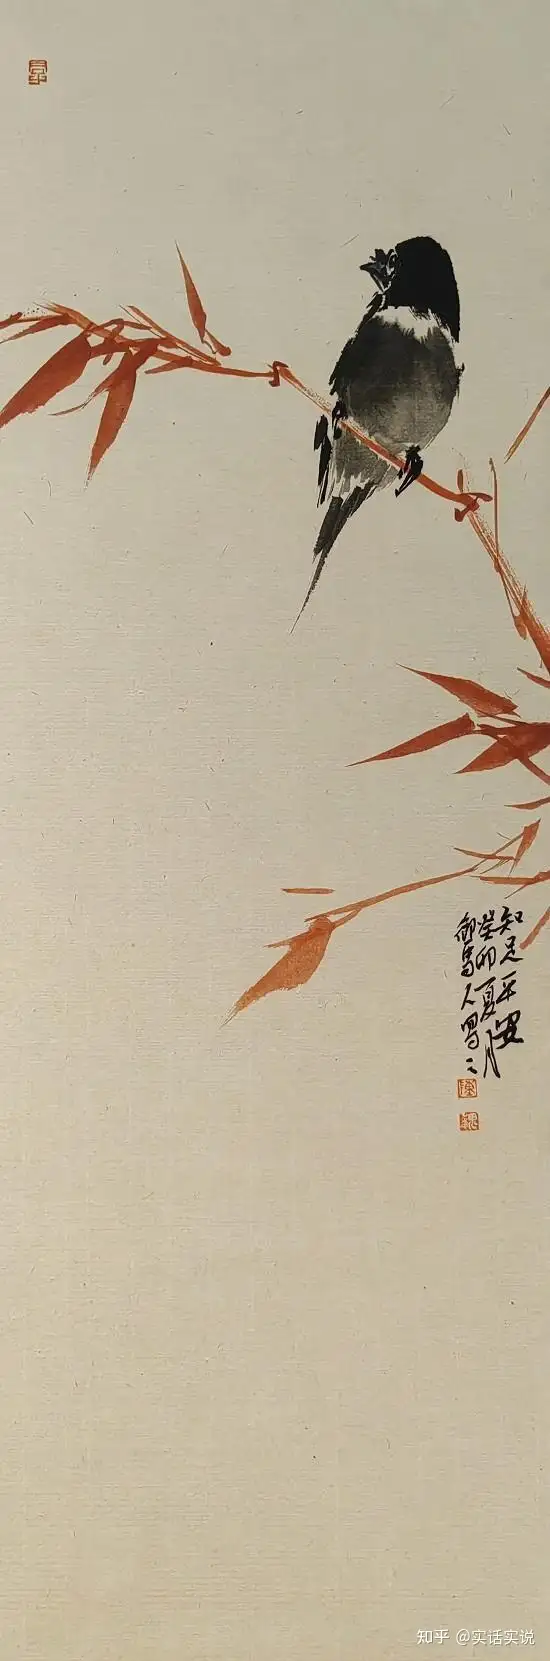 知足平安
癸卯夏月
人写
知乎 @实话实说